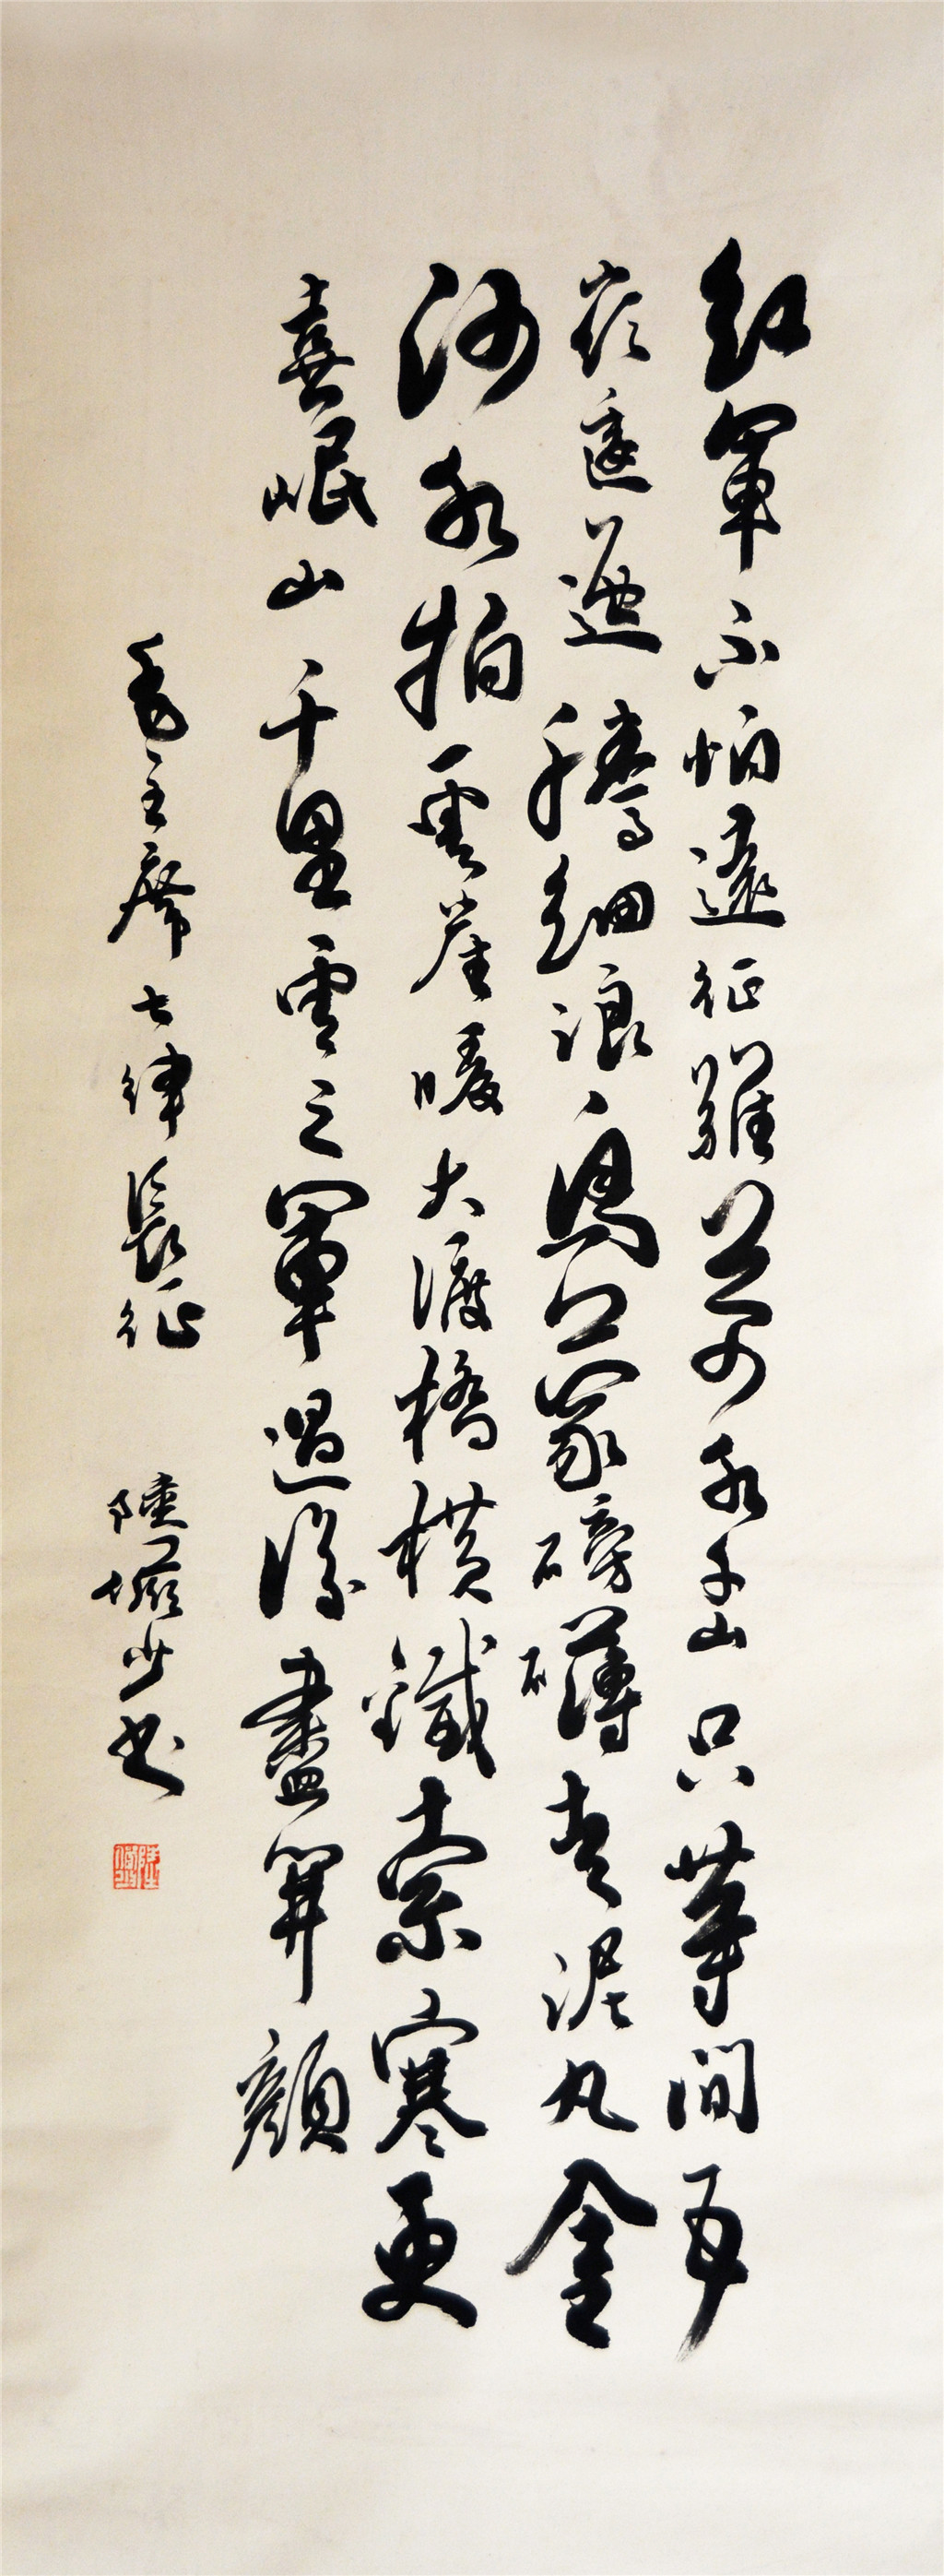 紅軍不怕遠征難萬水千山只等間五
嶺逶迤騰細浪烏蒙磅礴走泥丸金
沙水拍雲崖暖大渡橋橫鐵索寒更
喜岷山千里雪三軍過後盡開顏
毛主席七律長征 陸儼少書